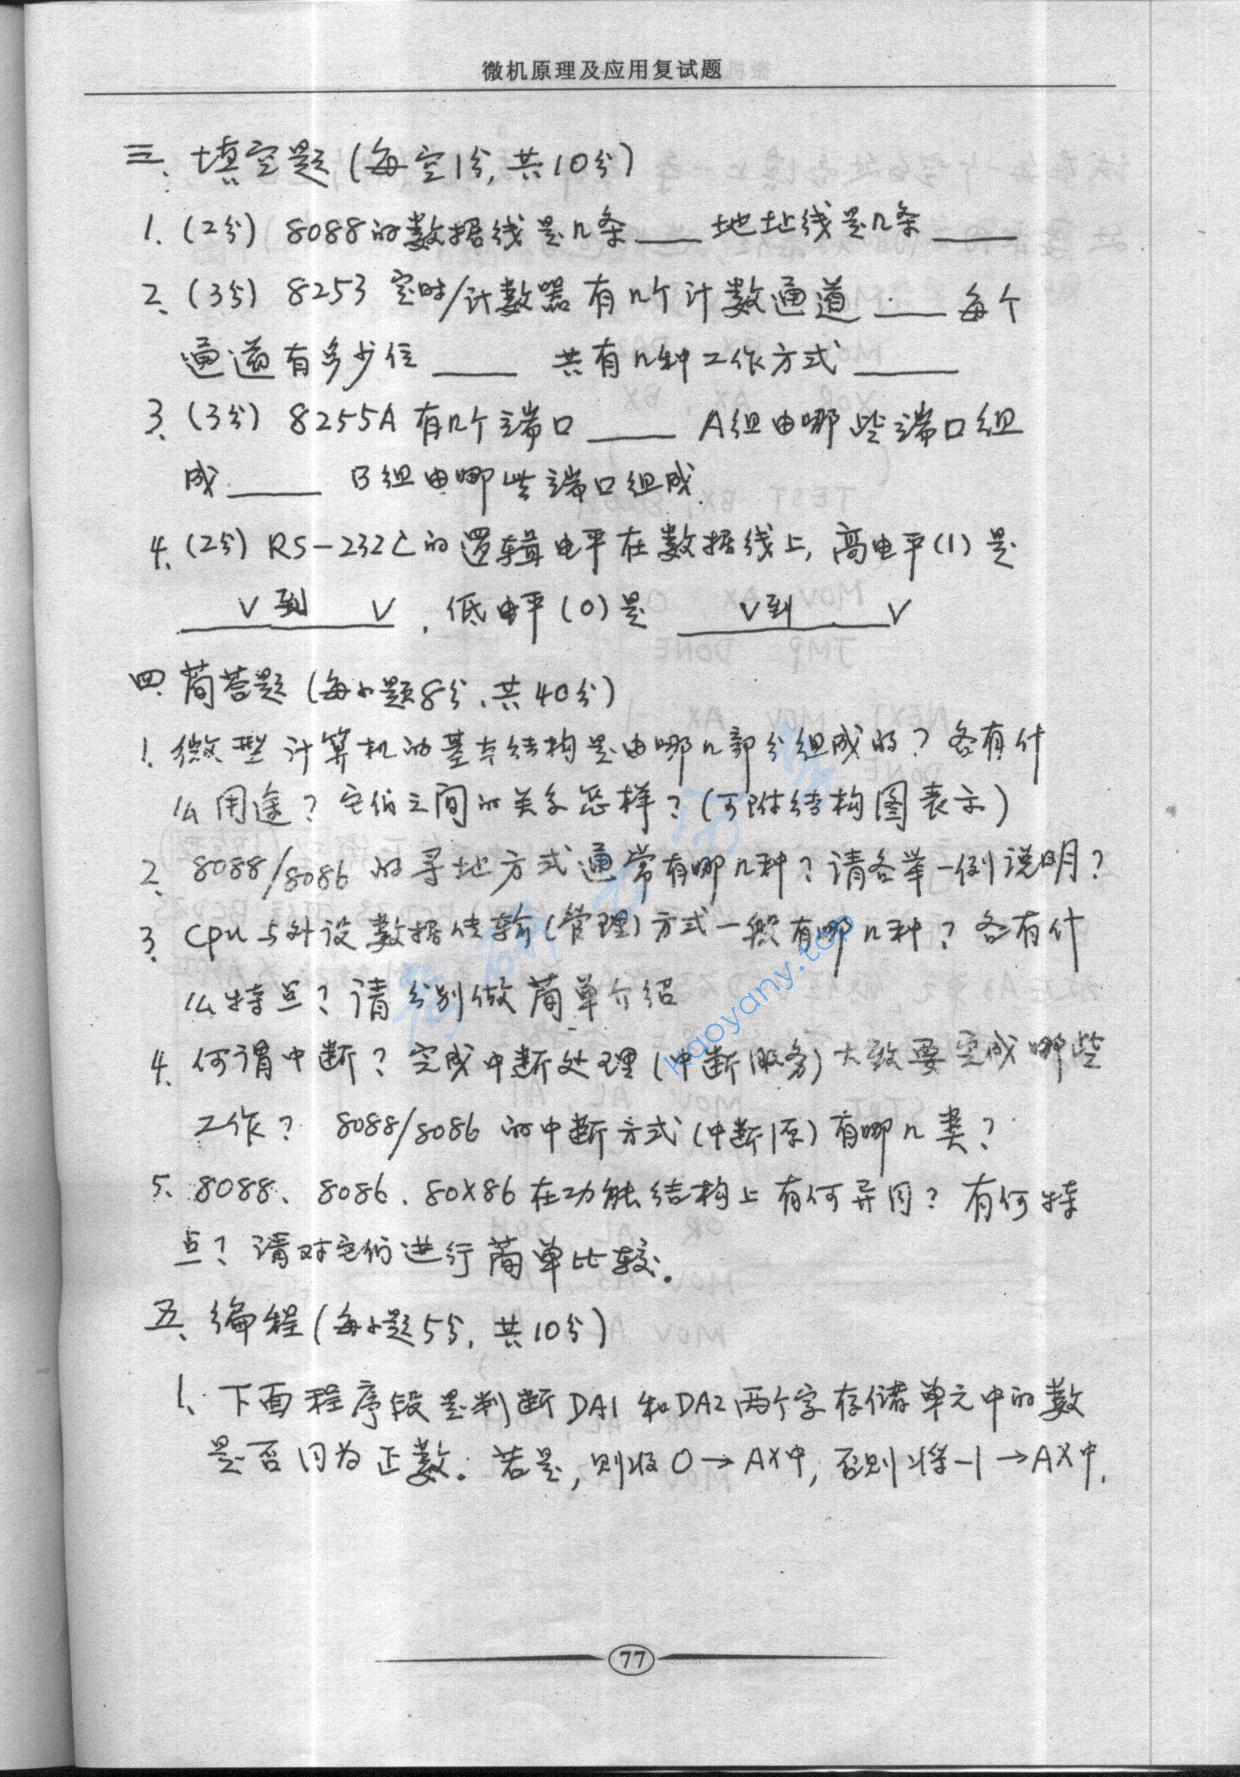 微机原理及应用复试题
三、填空题(每空1分,共10分)
1、(2分) 8088的数据线是几条____地址线是几条____
2、(3分) 8253 定时/计数器有几个计数通道____每个
通道有多少位____ 共有几种工作方式____
3、(3分) 8255A有几个端口____ A组由哪些端口组
成____ B组由哪些端口组成
4、(2分) RS-232C的逻辑电平在数据线上,高电平(1)是
____V到____V,低电平(0)是____V到____V
四、简答题(每小题8分、共40分)
1、微型计算机的基本结构是由哪几部分组成的?各有什
么用途?它们之间的关系怎样?(可附结构图表示)
2、8088/8086的寻址方式通常有哪几种?请各举一例说明?
3、CPU与外设数据传输(管理)方式一般有哪几种?各有什
么特点?请分别做简单介绍
4、何谓中断?完成中断处理(中断服务)大致要完成哪些
工作? 8088/8086的中断方式(中断源)有哪几类?
5、8088、8086、80X86在功能结构上有何异同?有何特
点?请对它们进行简单比较。
五、编程(每小题5分,共10分)
1、下面程序段是判断DA1和DA2两个字存储单元中的数
是否同为正数。若是,则将0→AX中,否则将-1→AX中.
kaoyany.top
77